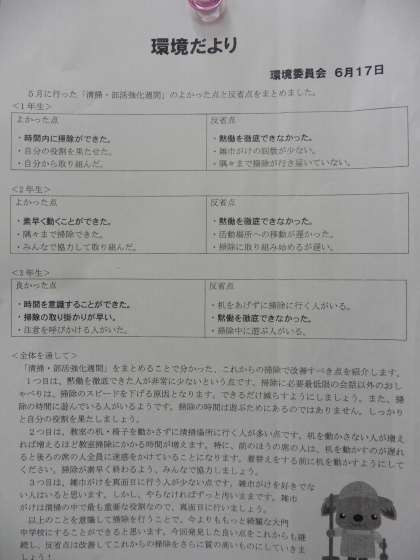 環境だより
環境委員会 6月17日
5月に行った「清掃・部活強化週間」のよかった点と反省点をまとめました。
<1年生>
よかった点
・時間内に掃除ができた。
・自分の役割を果たせた。
・自分から取り組んだ。
反省点
・黙働を徹底できなかった。
・雑巾がけの回数が少ない。
・隅々まで掃除が行き届いていない。
<2年生>
よかった点
・素早く動くことができた。
・隅々まで掃除できた。
・みんなで協力して取り組んだ。
反省点
・黙働を徹底できなかった。
・活動場所への移動が遅かった。
・掃除に取り組み始めるが遅い。
<3年生>
良かった点
・時間を意識することができた。
・掃除の取り掛かりが早い。
・注意を呼びかける人がいた。
反省点
・机をあげずに掃除に行く人がいる。
・黙働を徹底できなかった。
・掃除中に遊ぶ人がいる。
<全体を通して>
「清掃・部活強化週間」をまとめることで分かった、これからの掃除で改善すべき点を紹介します。
1つ目は、黙働を徹底できた人が非常に少ないという点です。掃除に必要最低限の会話以外のおし
ゃべりは、掃除のスピードを下げる原因となります。できるだけ減らすようにしましょう。また、掃
除の時間に遊んでいる人がいるようです。掃除の時間は遊ぶためにあるのではありません。しっかり
と自分の役割を果たしましょう。
2つ目は、教室の机・椅子を動かさずに清掃場所に行く人が多い点です。机を動かさない人が増え
れば増えるほど教室掃除にかかる時間が増えます。特に、前のほうの席の人は、机を動かすのが遅れ
ると後ろの席の人全員に迷惑をかけていることになります。着替えをする前に机を動かすようにして
ください。掃除が素早く終わるよう、みんなで協力しましょう。
3つ目は、雑巾がけを真面目に行う人が少ない点です。雑巾がけを好きでな
い人はいると思います。しかし、やらなければずっと汚いままです。雑巾
がけは清掃の中で最も重要な役割なので、真面目に行いましょう。
以上のことを意識して掃除を行うことで、今よりももっと綺麗な大門
中学校にすることができると思います。今回発見した良い点をこれからも継
続し、反省点は改善してこれからの掃除をさらに質の高いものにしていきま
しょう！